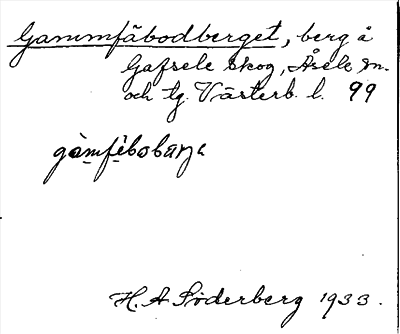 Gammfäbodberget, berg å
Gafsele skog, Åsele sn.
och tg. Västerb. l. 99
H. A. Söderberg 1933.